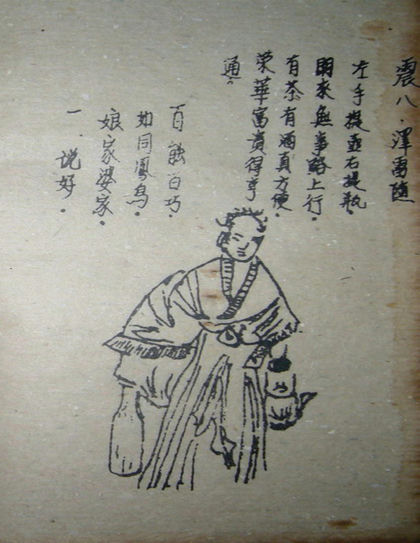 震八．澤雷隨
左手提壺右提瓶．
閑来無事路上行．
有茶有酒真方便．
荣華富貴得亨
通。
百能百巧．
如同鳳鳥．
娘家婆家．
一．説好．